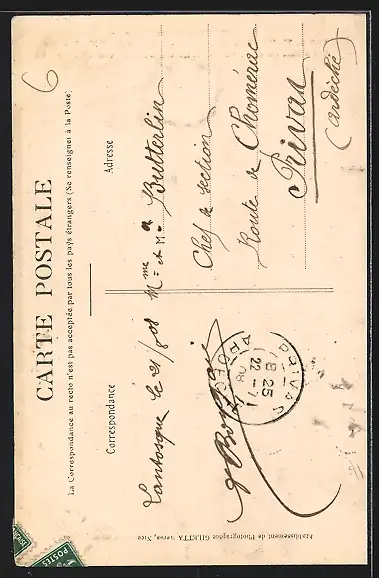 6
CARTE POSTALE
La Correspondance au recto n'est pas acceptée par tous les pays étrangers (Se renseigner à la Poste)
Correspondance
Lantosque le 21/7 08
Adresse
Mme et Mr Butterlin
Chef de section
Route de Chomérac
Privas
(Ardèche)
PRIVAS
8 25
22 - 7
08
ARDECHE
Etablissement de Photographie GILETTA Nice